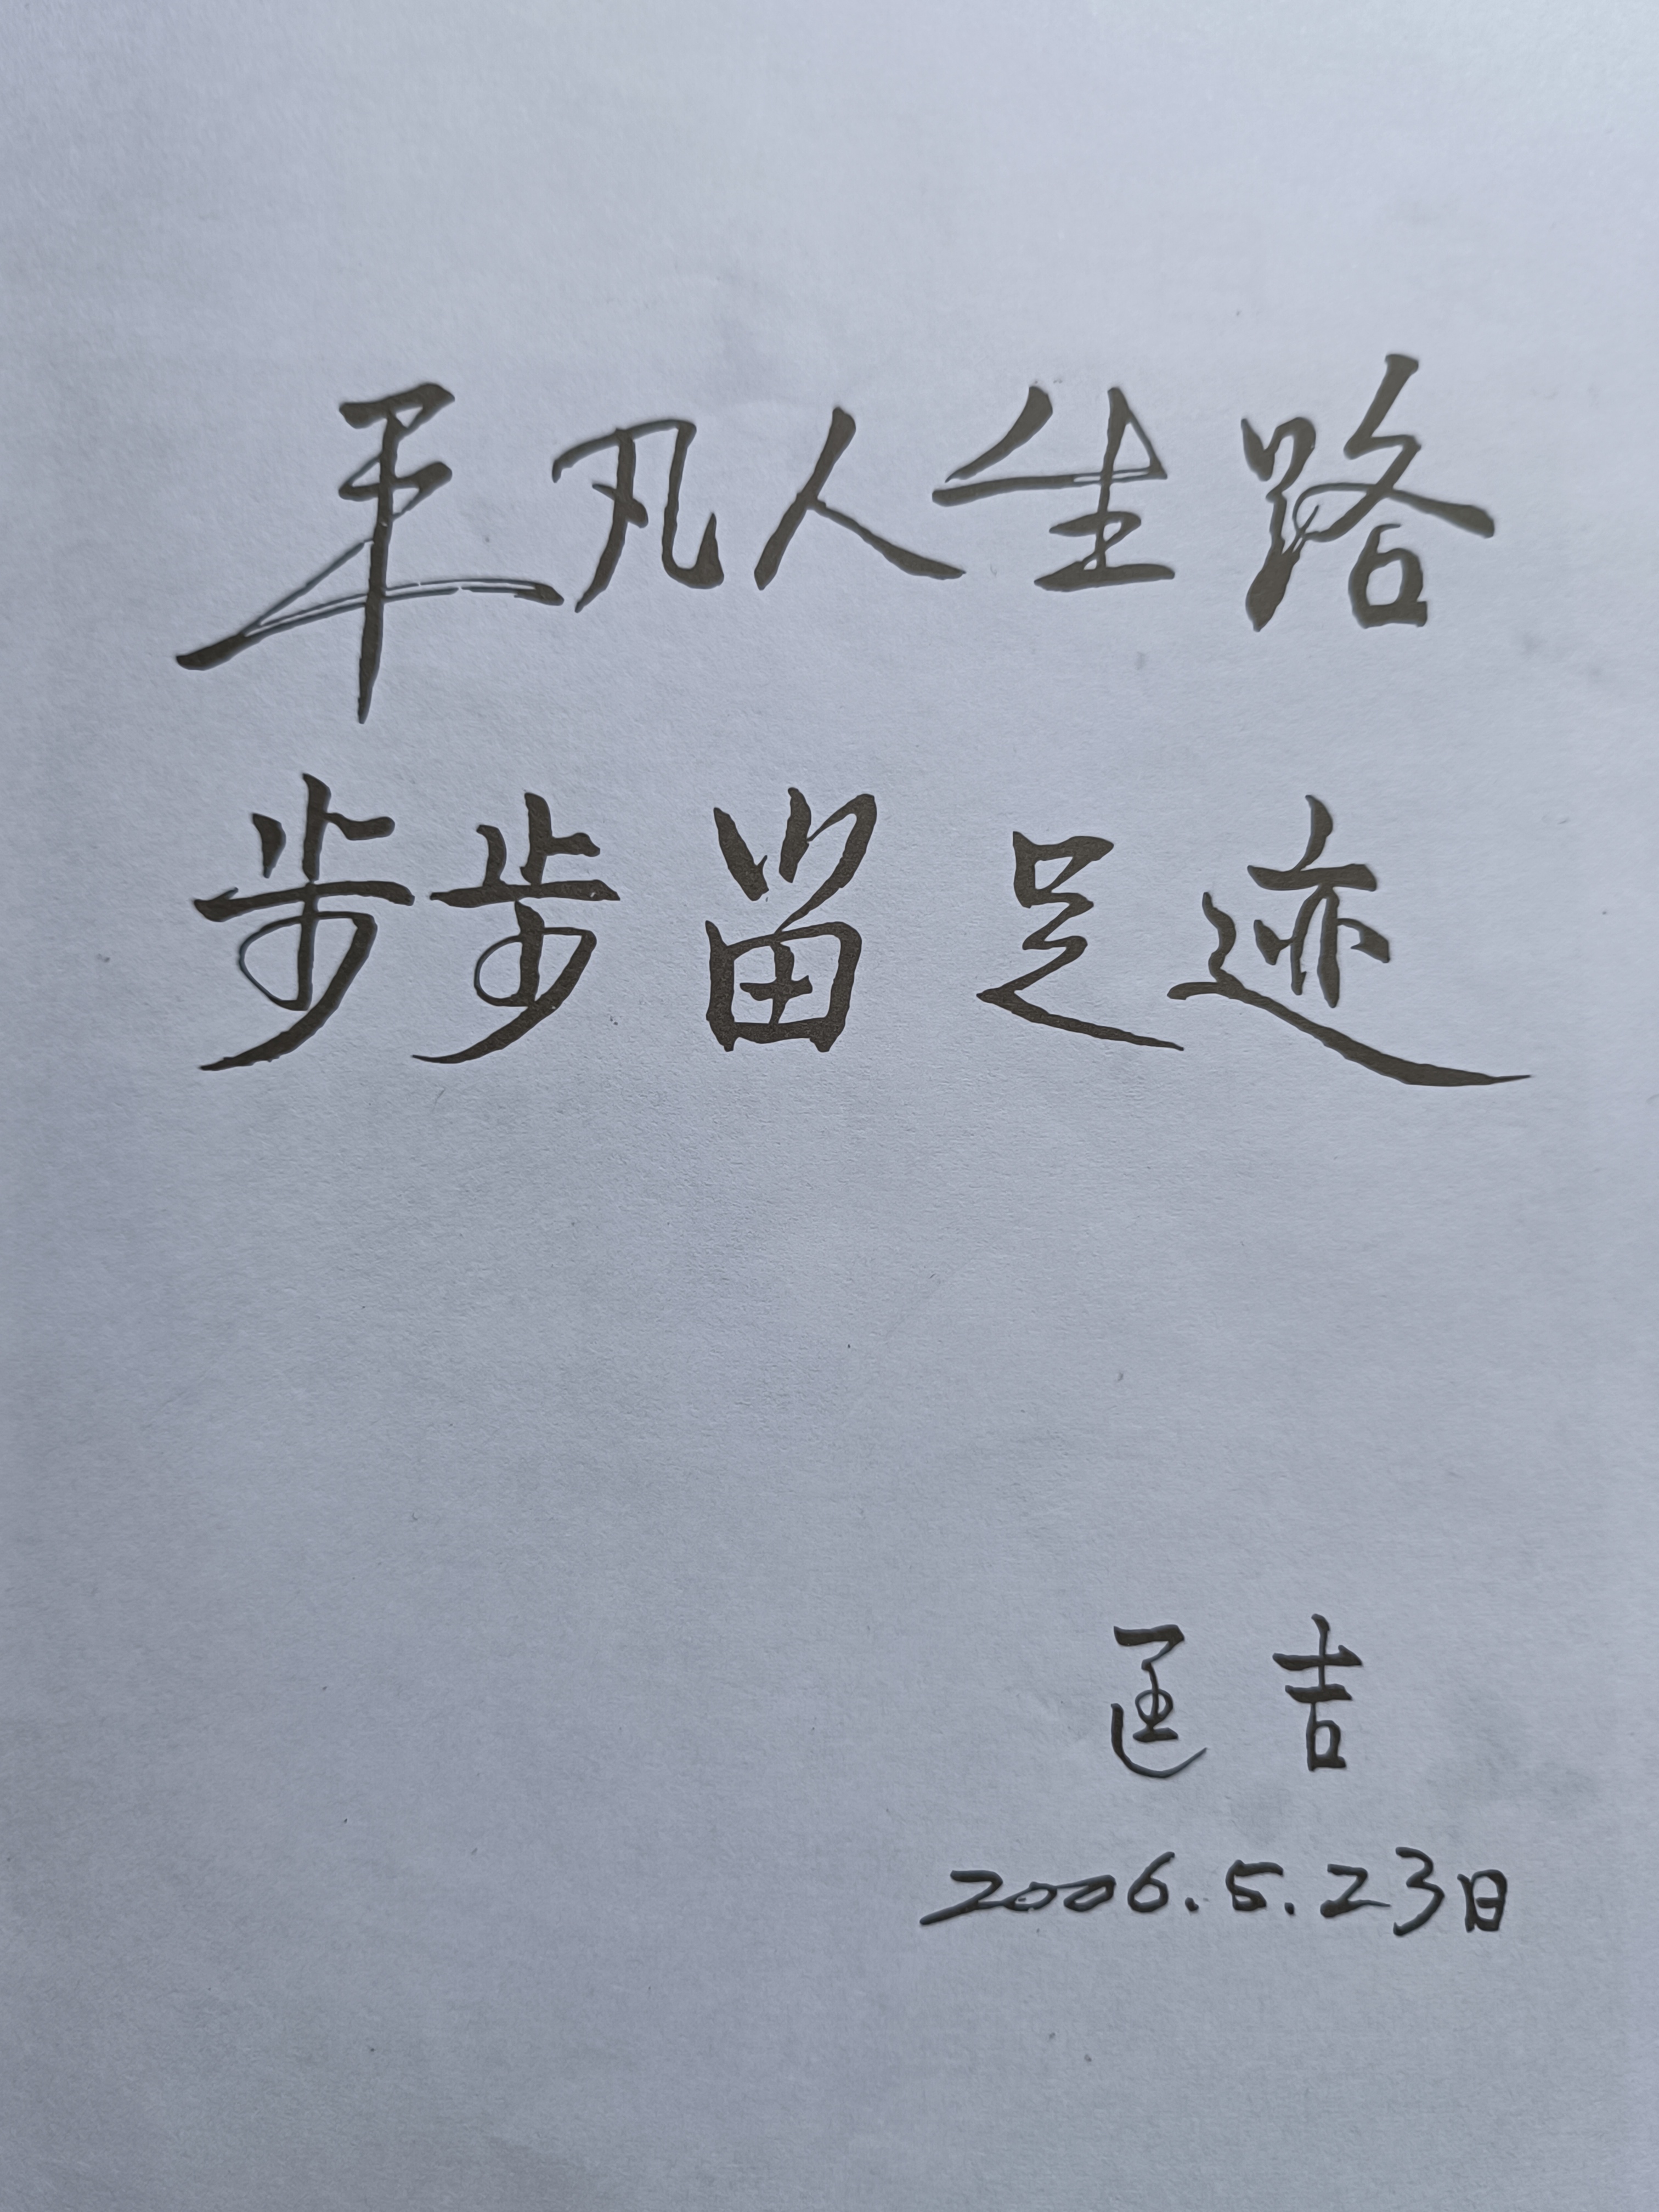 平凡人生路
步步留足迹
匡吉
2006.5.23日